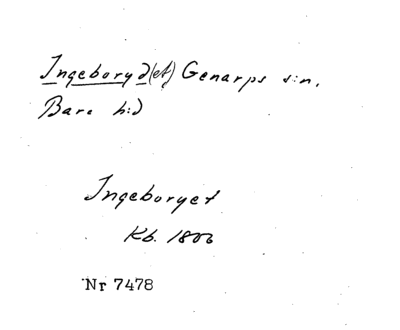 Ingeborgd(et) Genarps s:n,
Bara h:d
Ingeborget
Kb. 1800
Nr 7478